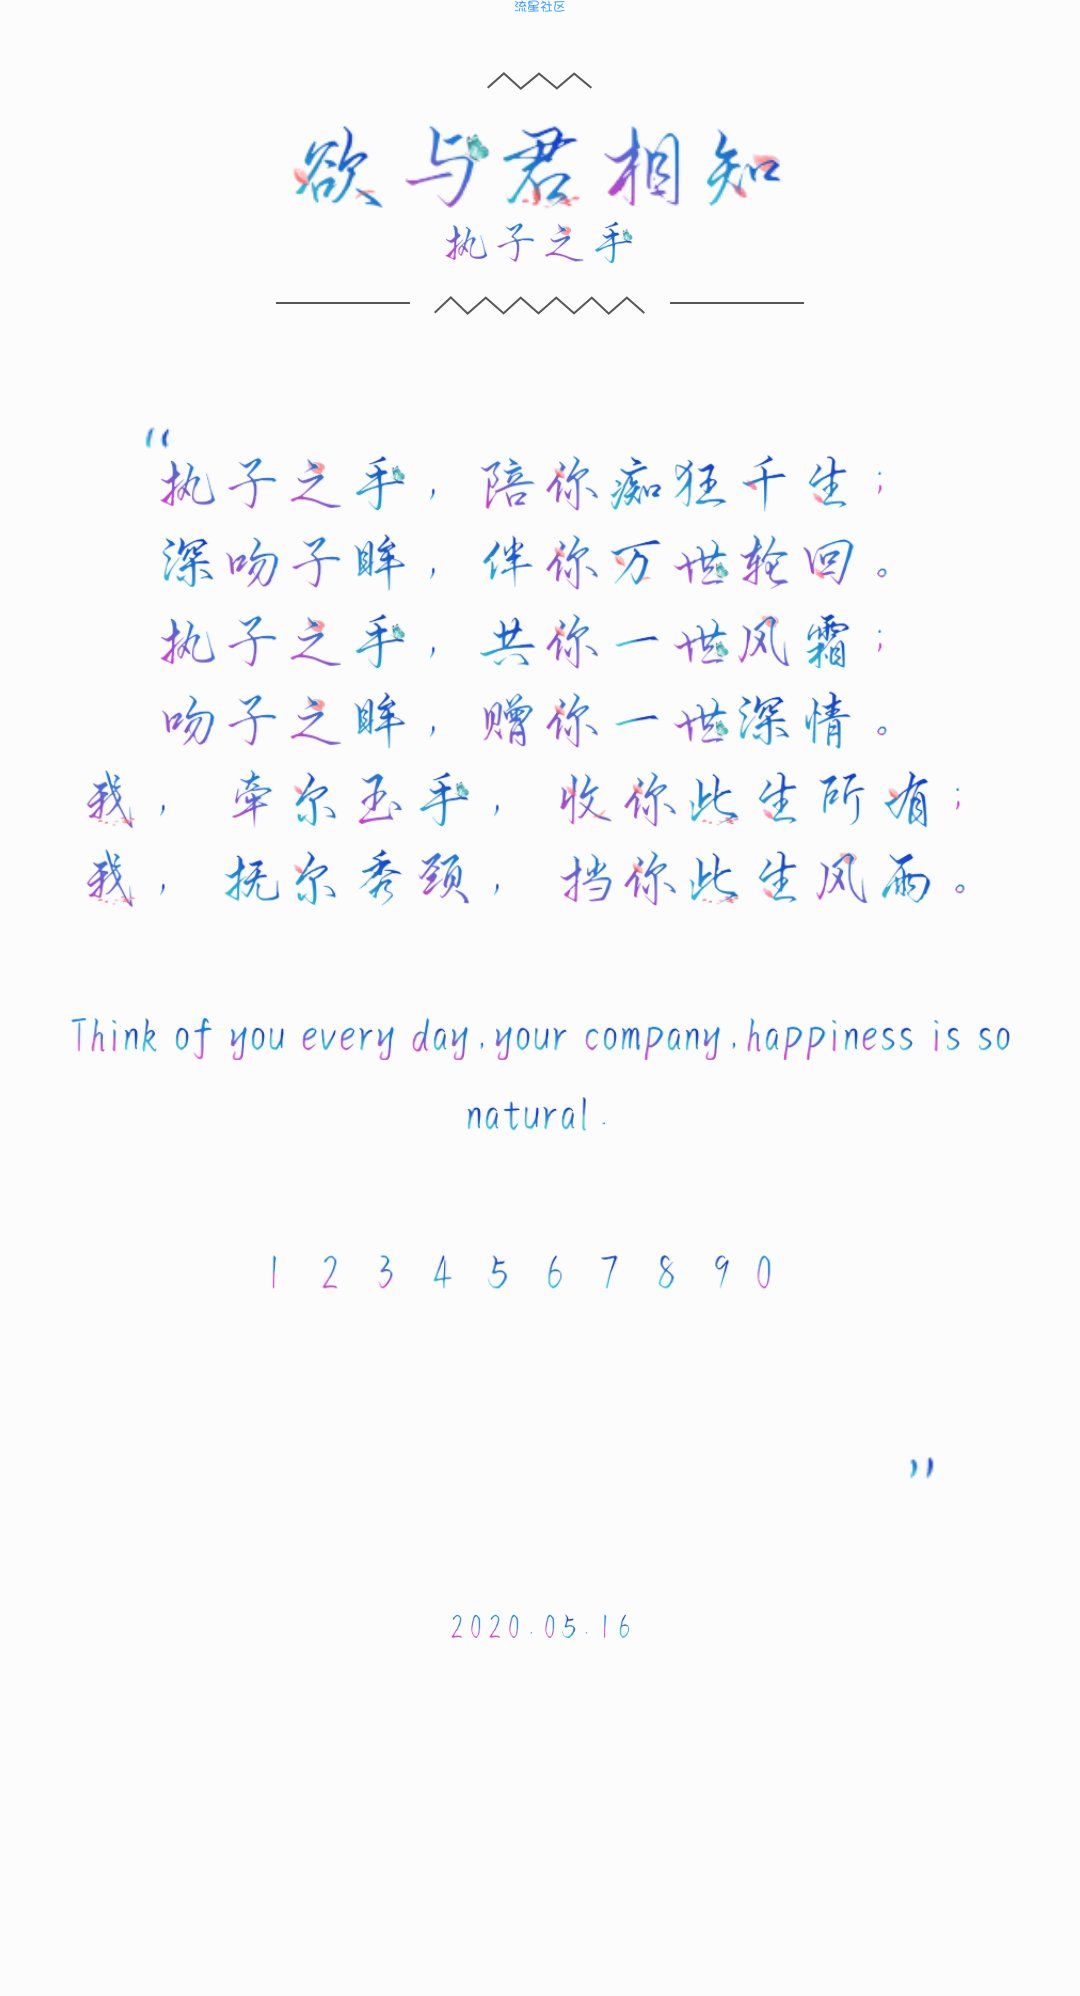 流星社区
欲与君相知
执子之手
“
执子之手，陪你痴狂千生；
深吻子眸，伴你万世轮回。
执子之手，共你一世风霜；
吻子之眸，赠你一世深情。
我，牵尔玉手，收你此生所有；
我，抚尔秀颈，挡你此生风雨。
Think of you every day,your company,happiness is so
natural.
1 2 3 4 5 6 7 8 9 0
”
2020.05.16